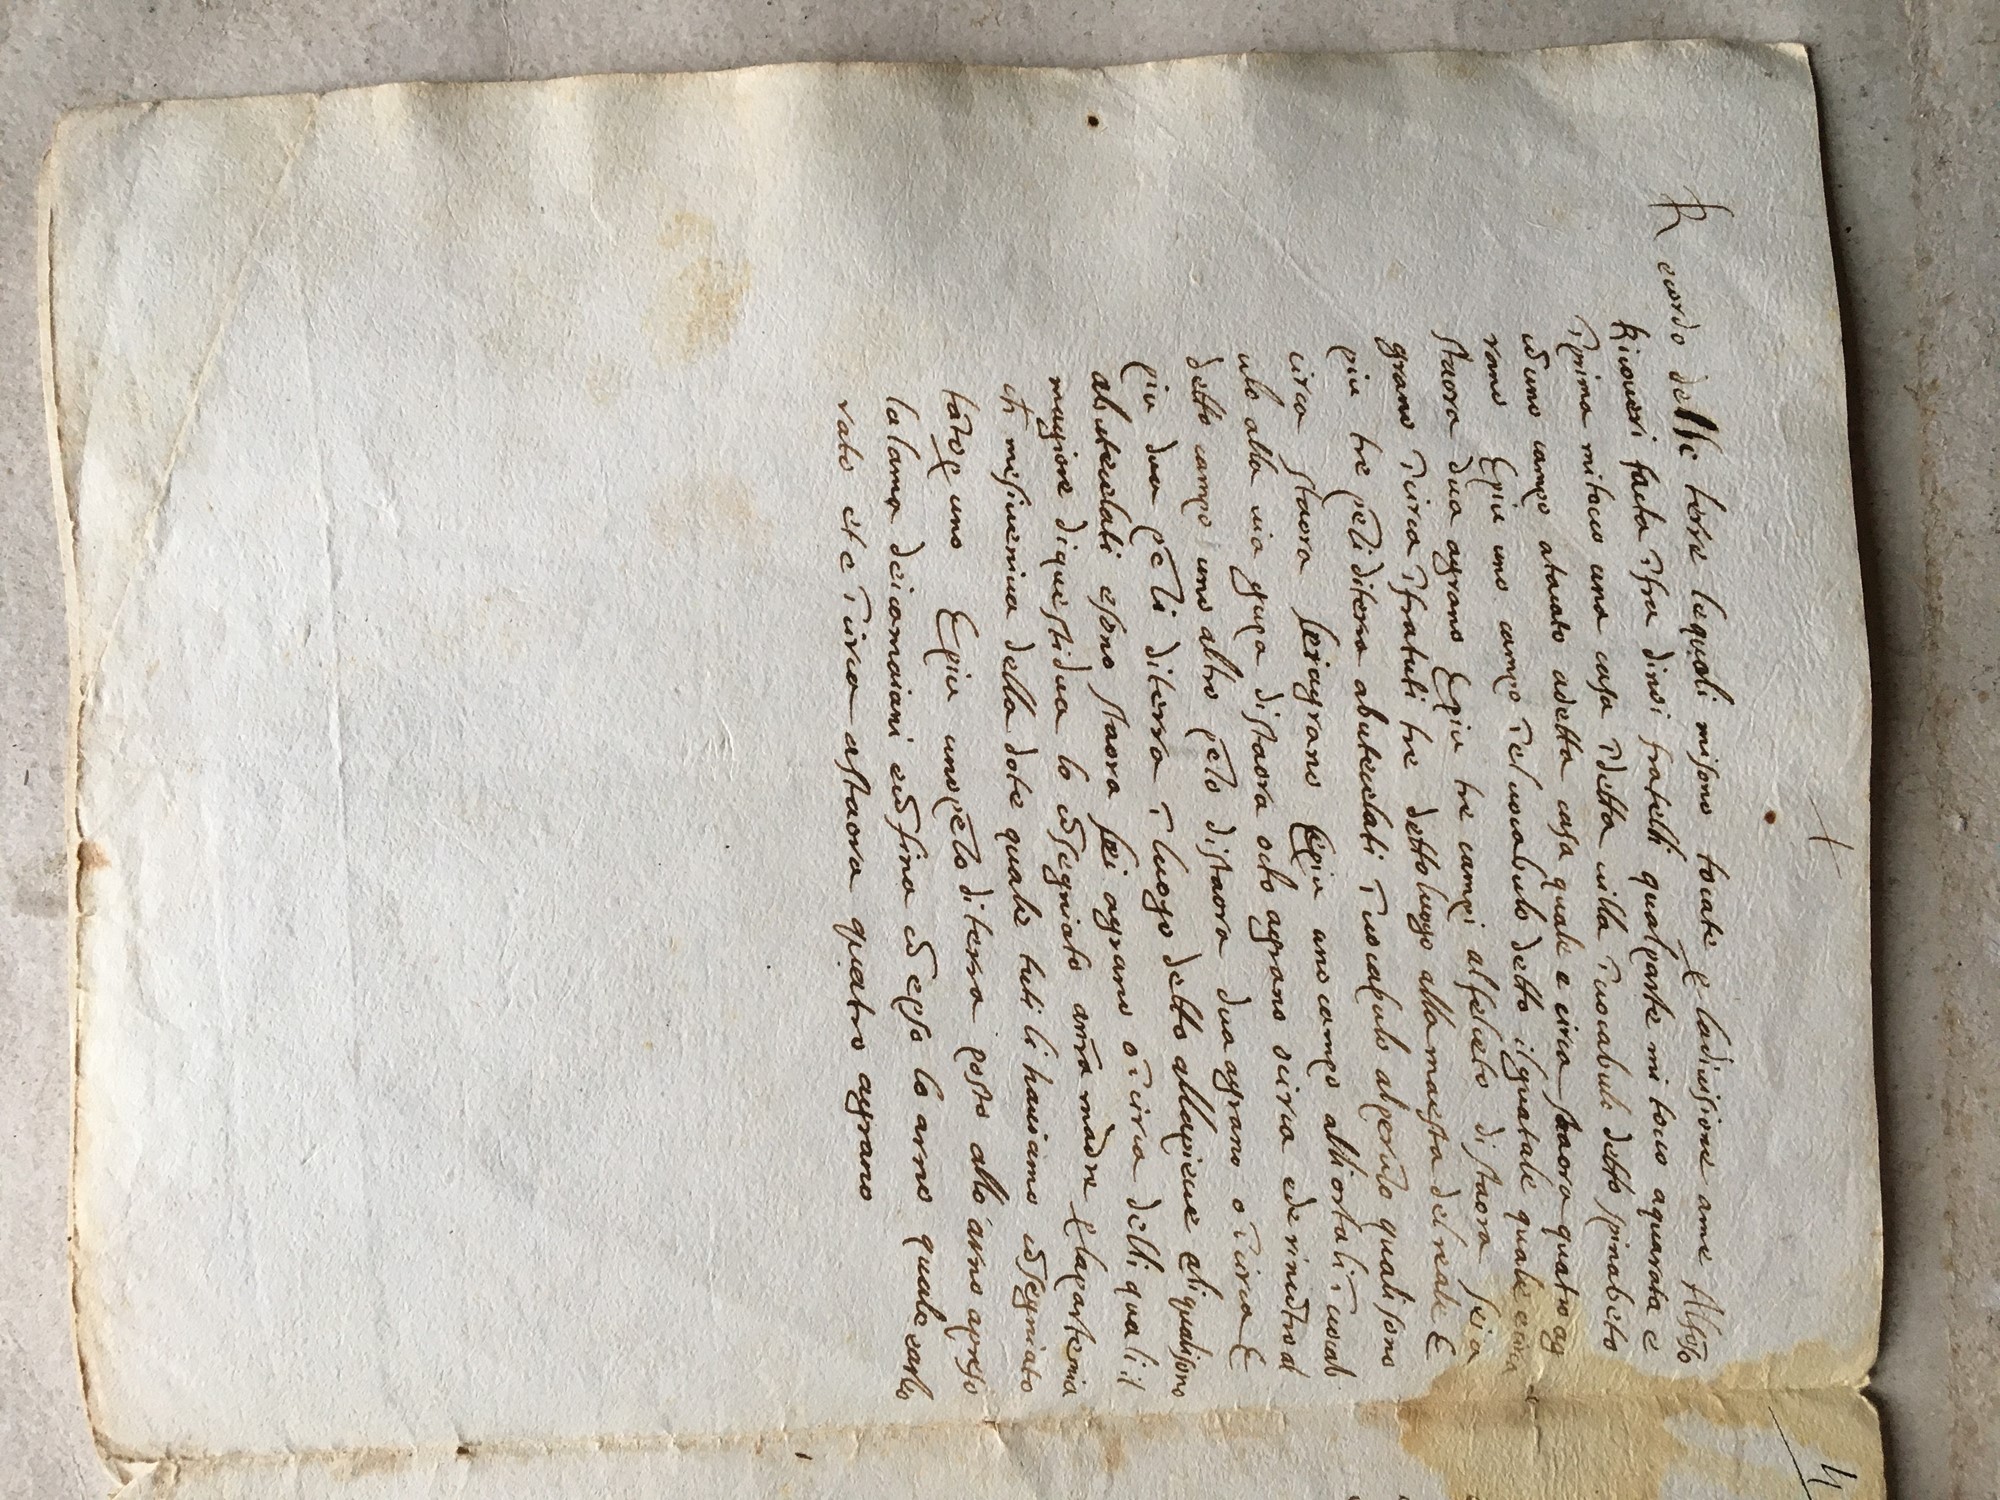 +
Ricordo delle terre lequali misono tocate p ladivisione ame Alfōso
Riccoveri facta ī fra dinoi fratelli qual parte mi toco aquarata e
ī prima mitoco una casa ī detta villa ī vocabulo detto spinabeto
cō uno campo atacato adetta casa quale e circa staora quatro ag
rano E piu uno campo ī el vocabulo detto il guatale quale e circa
staora dua agrano E piu tre campi al felceto di staora sei a
grano ī circa ī fratuti tre detto luogo alla maesta del reale E
piu tre peti di terra abuteclati ī vocabulo al peruto quali sono
circa staora sei agrano E piu uno campo alli ortali ī vocab
ulo alla via gupa di staora octo agrano o circa ede rincōtro al
detto campo uno altro peto di staora dua agrano o ī circa E
piu dua peti di terra ī luogo detto allapieve ali quali sono
abuteclati e sono staora sei agrano o ī circa delli quali il
magiore di questi dua lo cōsegniato a mīa madre p la parte mia
ch mesi veniva della dote quale tuti li haviamo cōsegniato
tāto p uno E piu uno peto di terra posto allo arno apreso
la lama dei camaiani e cō fina cō e presso lo arno quale
vato et e ī circa a staora quatro agrano
4